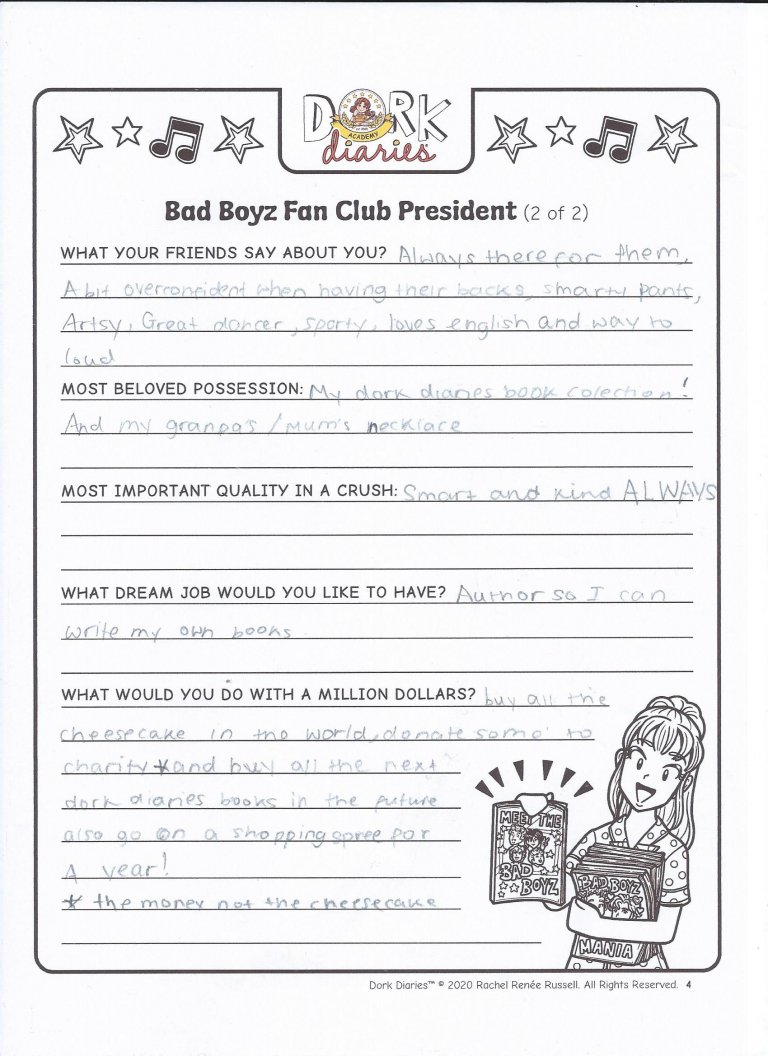 DORK
ACADEMY
diaries
Bad Boyz Fan Club President (2 of 2)
WHAT YOUR FRIENDS SAY ABOUT YOU? Always there for them,
A bit overconfident when having their backs, smarty pants,
Artsy, Great dancer, sporty, loves english and way to
loud
MOST BELOVED POSSESSION: My dork diaries book colection!
And my granpa's / Mum's necklace
MOST IMPORTANT QUALITY IN A CRUSH: Smart and kind ALWAYS
WHAT DREAM JOB WOULD YOU LIKE TO HAVE? Author so I can
write my own books
WHAT WOULD YOU DO WITH A MILLION DOLLARS? buy all the
cheesecake in the world, donate some to
charity * and buy all the next
dork diaries books in the future
also go on a shopping spree for
A year!
* the money not the cheesecake
MEET THE
BAD
BOYZ
BAD BOYZ
MANIA
Dork Diaries™ © 2020 Rachel Renée Russell. All Rights Reserved. 4